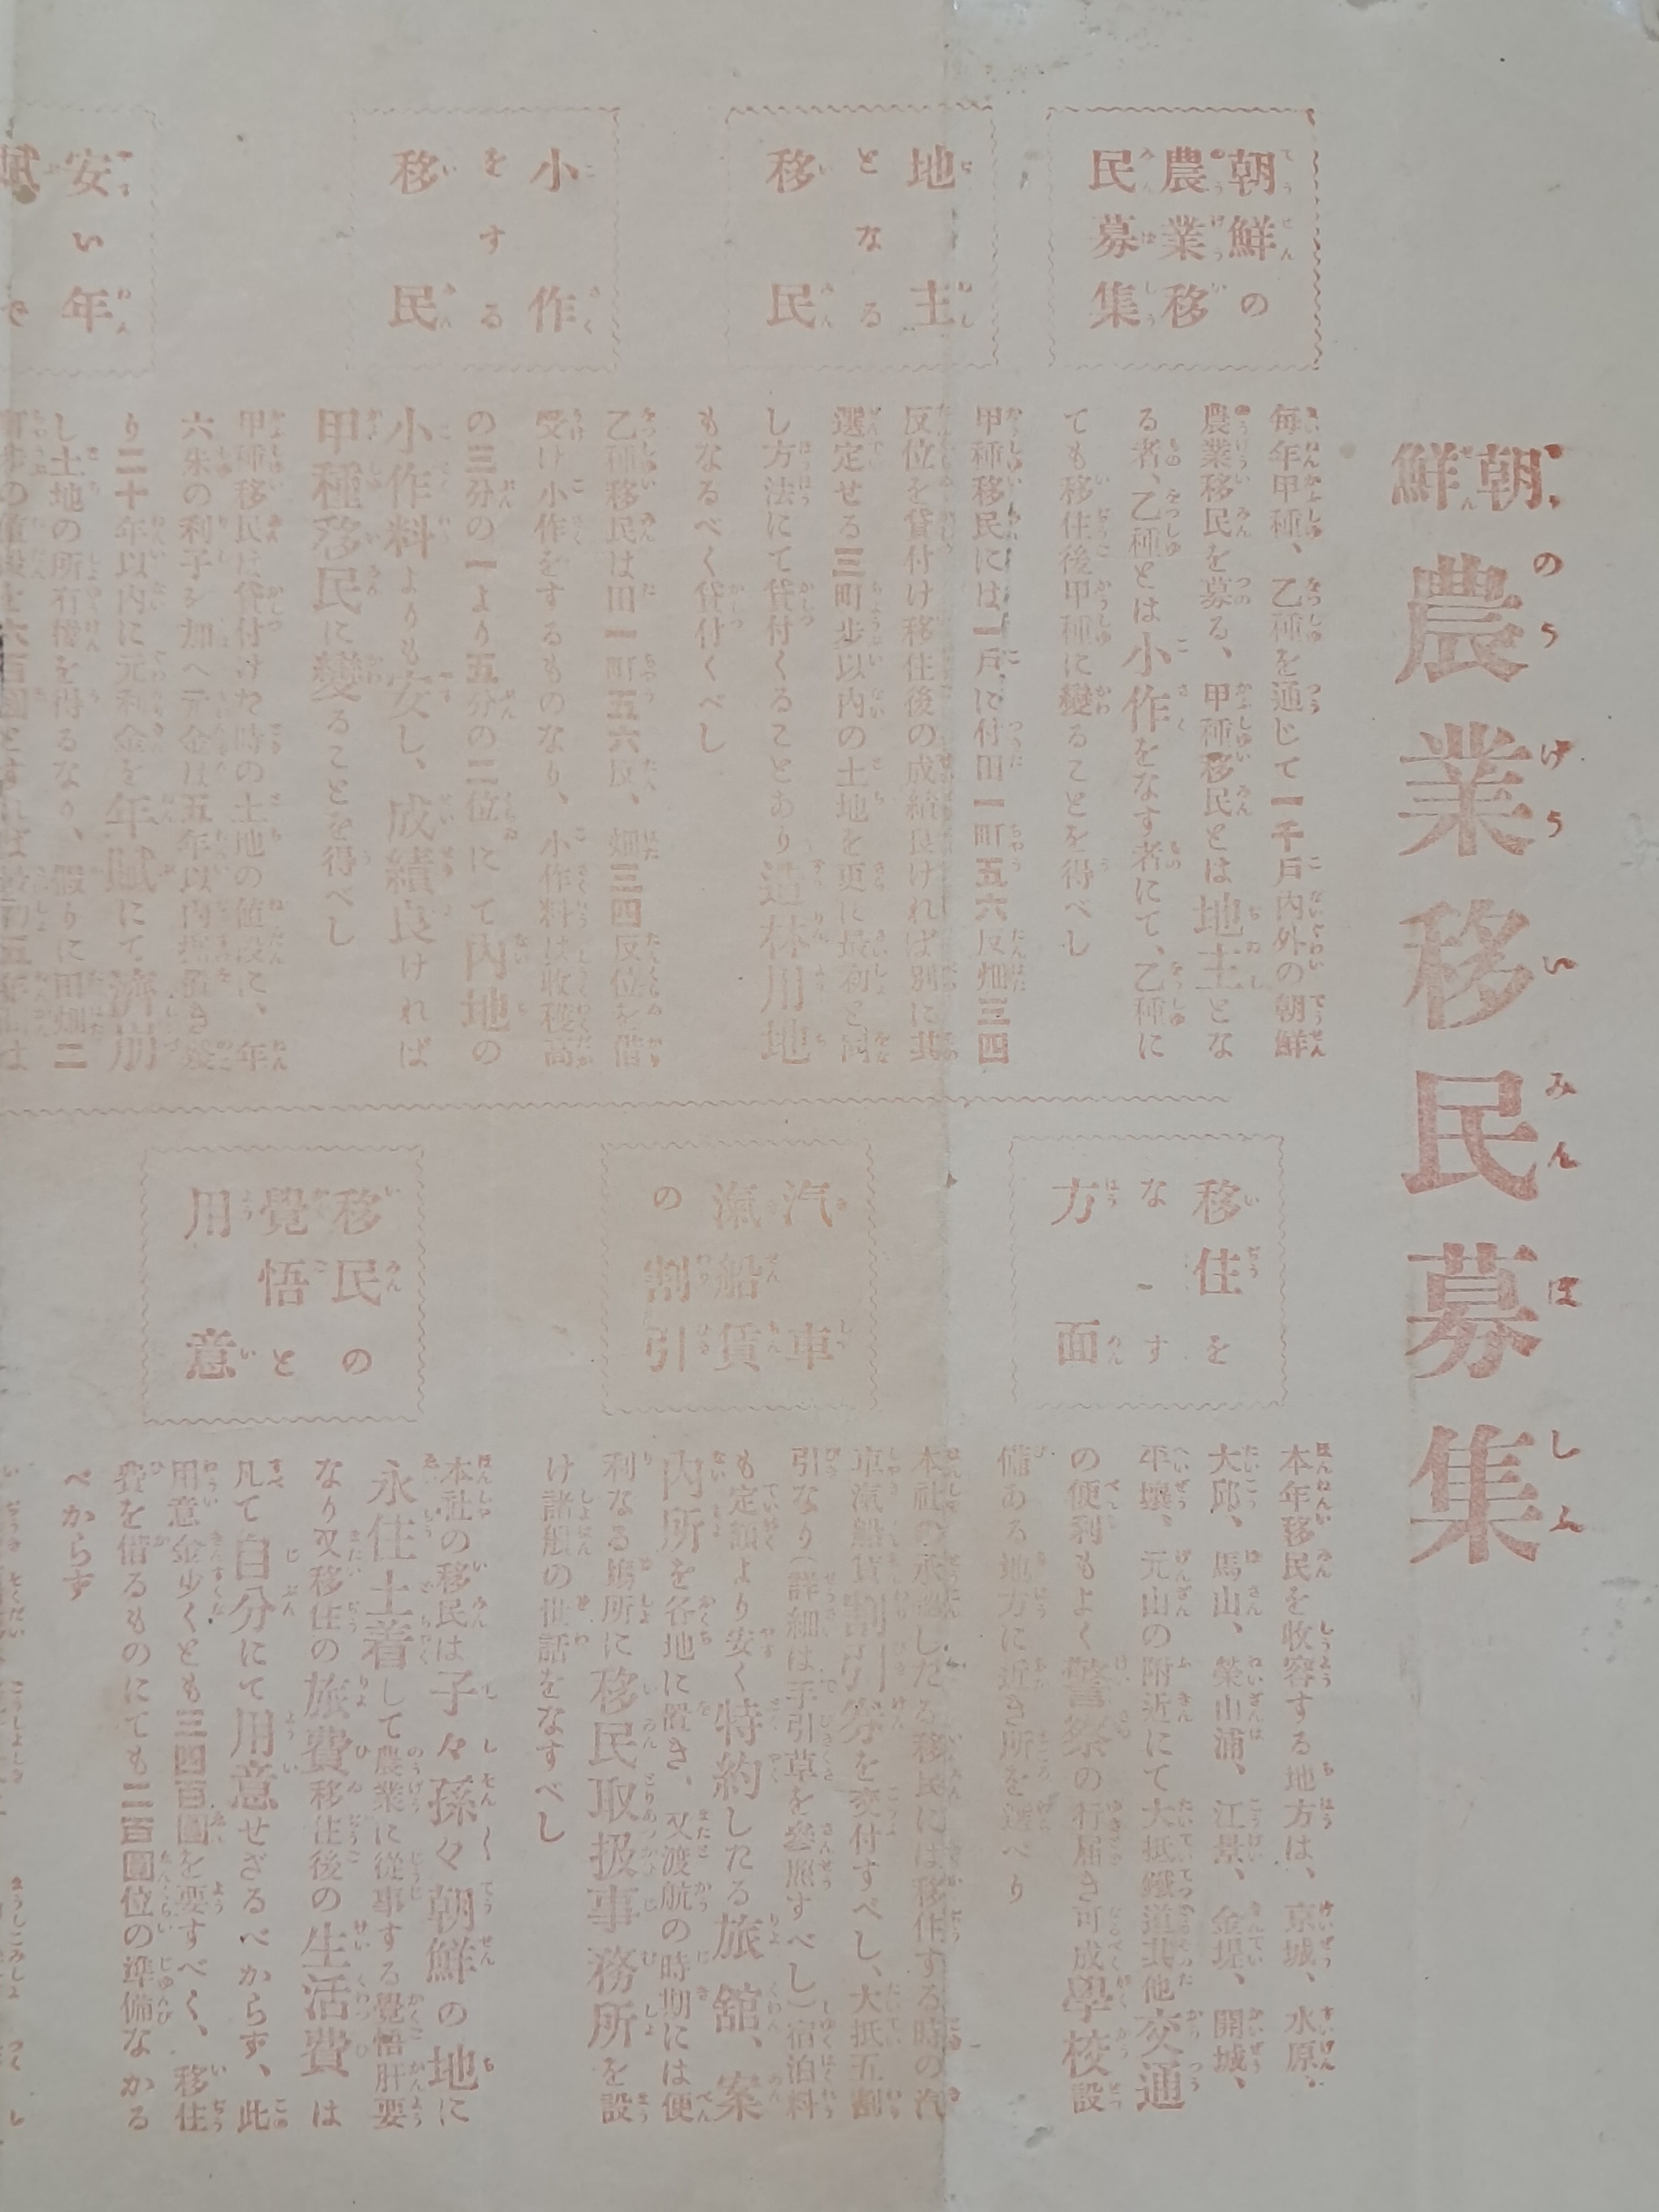 朝鮮の農業移民募集
朝鮮の
農業移
民募集
毎年甲種、乙種を通じて一千戸内外の朝鮮
農業移民を募る、甲種移民とは地主とな
る者、乙種とは小作をなす者にて、乙種に
ても移住後甲種に變ることを得べし
地主
となる
移民
甲種移民には一戸に付田一町五六反畑三四
反位を貸付け移住後の成績良ければ別に其
選定せる三町歩以内の土地を更に最初と同
し方法にて貸付くることあり造林用地
もなるべく貸付くべし
小作
をする
移民
乙種移民は田一町五六反、畑三四反位を借
受け小作をするものなり、小作料は收穫高
の三分の一より五分の二位にて内地の
小作料よりも安し、成績良ければ
甲種移民に變ることを得べし
安い年
甲種移民は貸付けた時の土地の値段に、年
六朱の利子を加へ元金は五年以内据置き
り二十年以内に元利金を年賦にて濟崩
し土地の所有權を得るなり、假りに田畑二
移住を
なす
方面
本年移民を收容する地方は、京城、水原、
大邱、馬山、榮山浦、江景、金堤、開城、
平壤、元山の附近にて大抵鐵道其他交通
の便利もよく警察の行届き可成學校設
備ある地方に近き所を選べり
汽車
滊船賃
の割引
本社の承認したる移民には移住する時の汽
車滊船賃割引券を交付すべし、大抵五割
引なり(詳細は手引草を參照すべし)宿泊料
も定額より安く特約したる旅舘、案
内所を各地に置き、又渡航の時期には便
利なる塲所に移民取扱事務所を設
け諸般の世話をなすべし
移民の
覺悟と
用意
本社の移民は子々孫々朝鮮の地に
永住土着して農業に從事する覺悟肝要
なり又移住の旅費移住後の生活費は
凡て自分にて用意せざるべからず、此
用意金少くとも三四百圓を要すべく、移住
費を借るものにても二百圓位の準備なかる
べからず